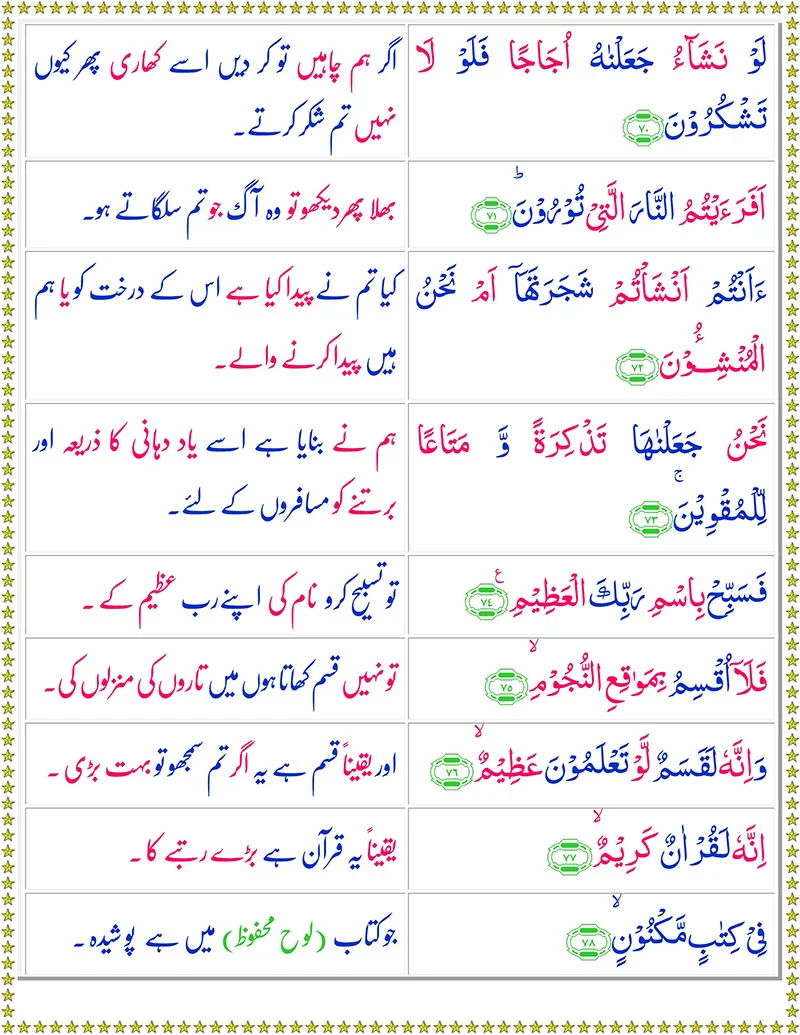 لَوْ نَشَآءُ جَعَلْنٰهُ اُجَاجًا فَلَوْ لَا
تَشْكُرُوْنَ ﴿۷۰﴾
اگر ہم چاہیں تو کر دیں اسے کھاری پھر کیوں
نہیں تم شکر کرتے۔
اَفَرَءَيْتُمُ النَّارَ الَّتِيْ تُوْرُوْنَ ؕ ﴿۷۱﴾
بھلا پھر دیکھو تو وہ آگ جو تم سلگاتے ہو۔
ءَاَنْتُمْ اَنْشَاْتُمْ شَجَرَتَهَآ اَمْ نَحْنُ
الْمُنْشِـُٔوْنَ ﴿۷۲﴾
کیا تم نے پیدا کیا ہے اس کے درخت کو یا ہم
ہیں پیدا کرنے والے۔
نَحْنُ جَعَلْنٰهَا تَذْكِرَةً وَّ مَتَاعًا
لِّلْمُقْوِيْنَ ۚ ﴿۷۳﴾
ہم نے بنایا ہے اسے یاد دہانی کا ذریعہ اور
برتنے کو مسافروں کے لئے۔
فَسَبِّحْ بِاسْمِ رَبِّكَ الْعَظِيْمِ ۧ ﴿۷۴﴾
تو تسبیح کرو نام کی اپنے رب عظیم کے ۔
فَلَآ اُقْسِمُ بِمَوٰقِعِ النُّجُوْمِ ۙ ﴿۷۵﴾
تو نہیں قسم کھاتا ہوں میں تاروں کی منزلوں کی۔
وَاِنَّهٗ لَقَسَمٌ لَّوْ تَعْلَمُوْنَ عَظِيْمٌ ۙ ﴿۷۶﴾
اور یقیناً قسم ہے یہ اگر تم سمجھو تو بہت بڑی ۔
اِنَّهٗ لَقُرْاٰنٌ كَرِيْمٌ ۙ ﴿۷۷﴾
یقیناً یہ قرآن ہے بڑے رتبے کا ۔
فِيْ كِتٰبٍ مَّكْنُوْنٍ ۙ ﴿۷۸﴾
جو کتاب (لوح محفوظ) میں ہے پوشیدہ ۔